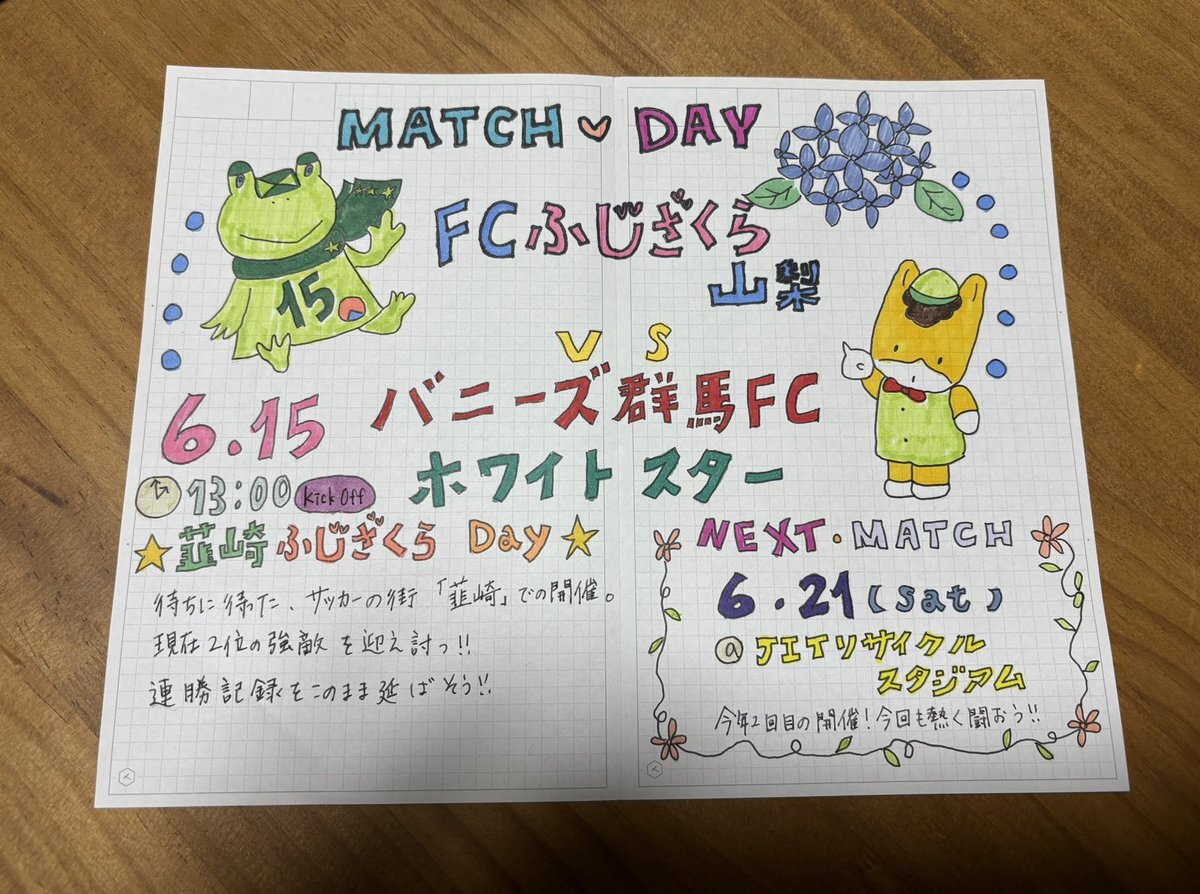 MATCH DAY
FCふじざくら
山梨
VS
バニーズ群馬FC
ホワイトスター
15
6.15
13:00 Kick Off
韮崎ふじざくら Day
待ちに待った、サッカーの街「韮崎」での開催。
現在2位の強敵を迎え討つ!!
連勝記録をこのまま延ばそう!!
NEXT・MATCH
6.21(Sat)
@JITリサイクル
スタジアム
今年2回目の開催!今回も熱く闘おう!!